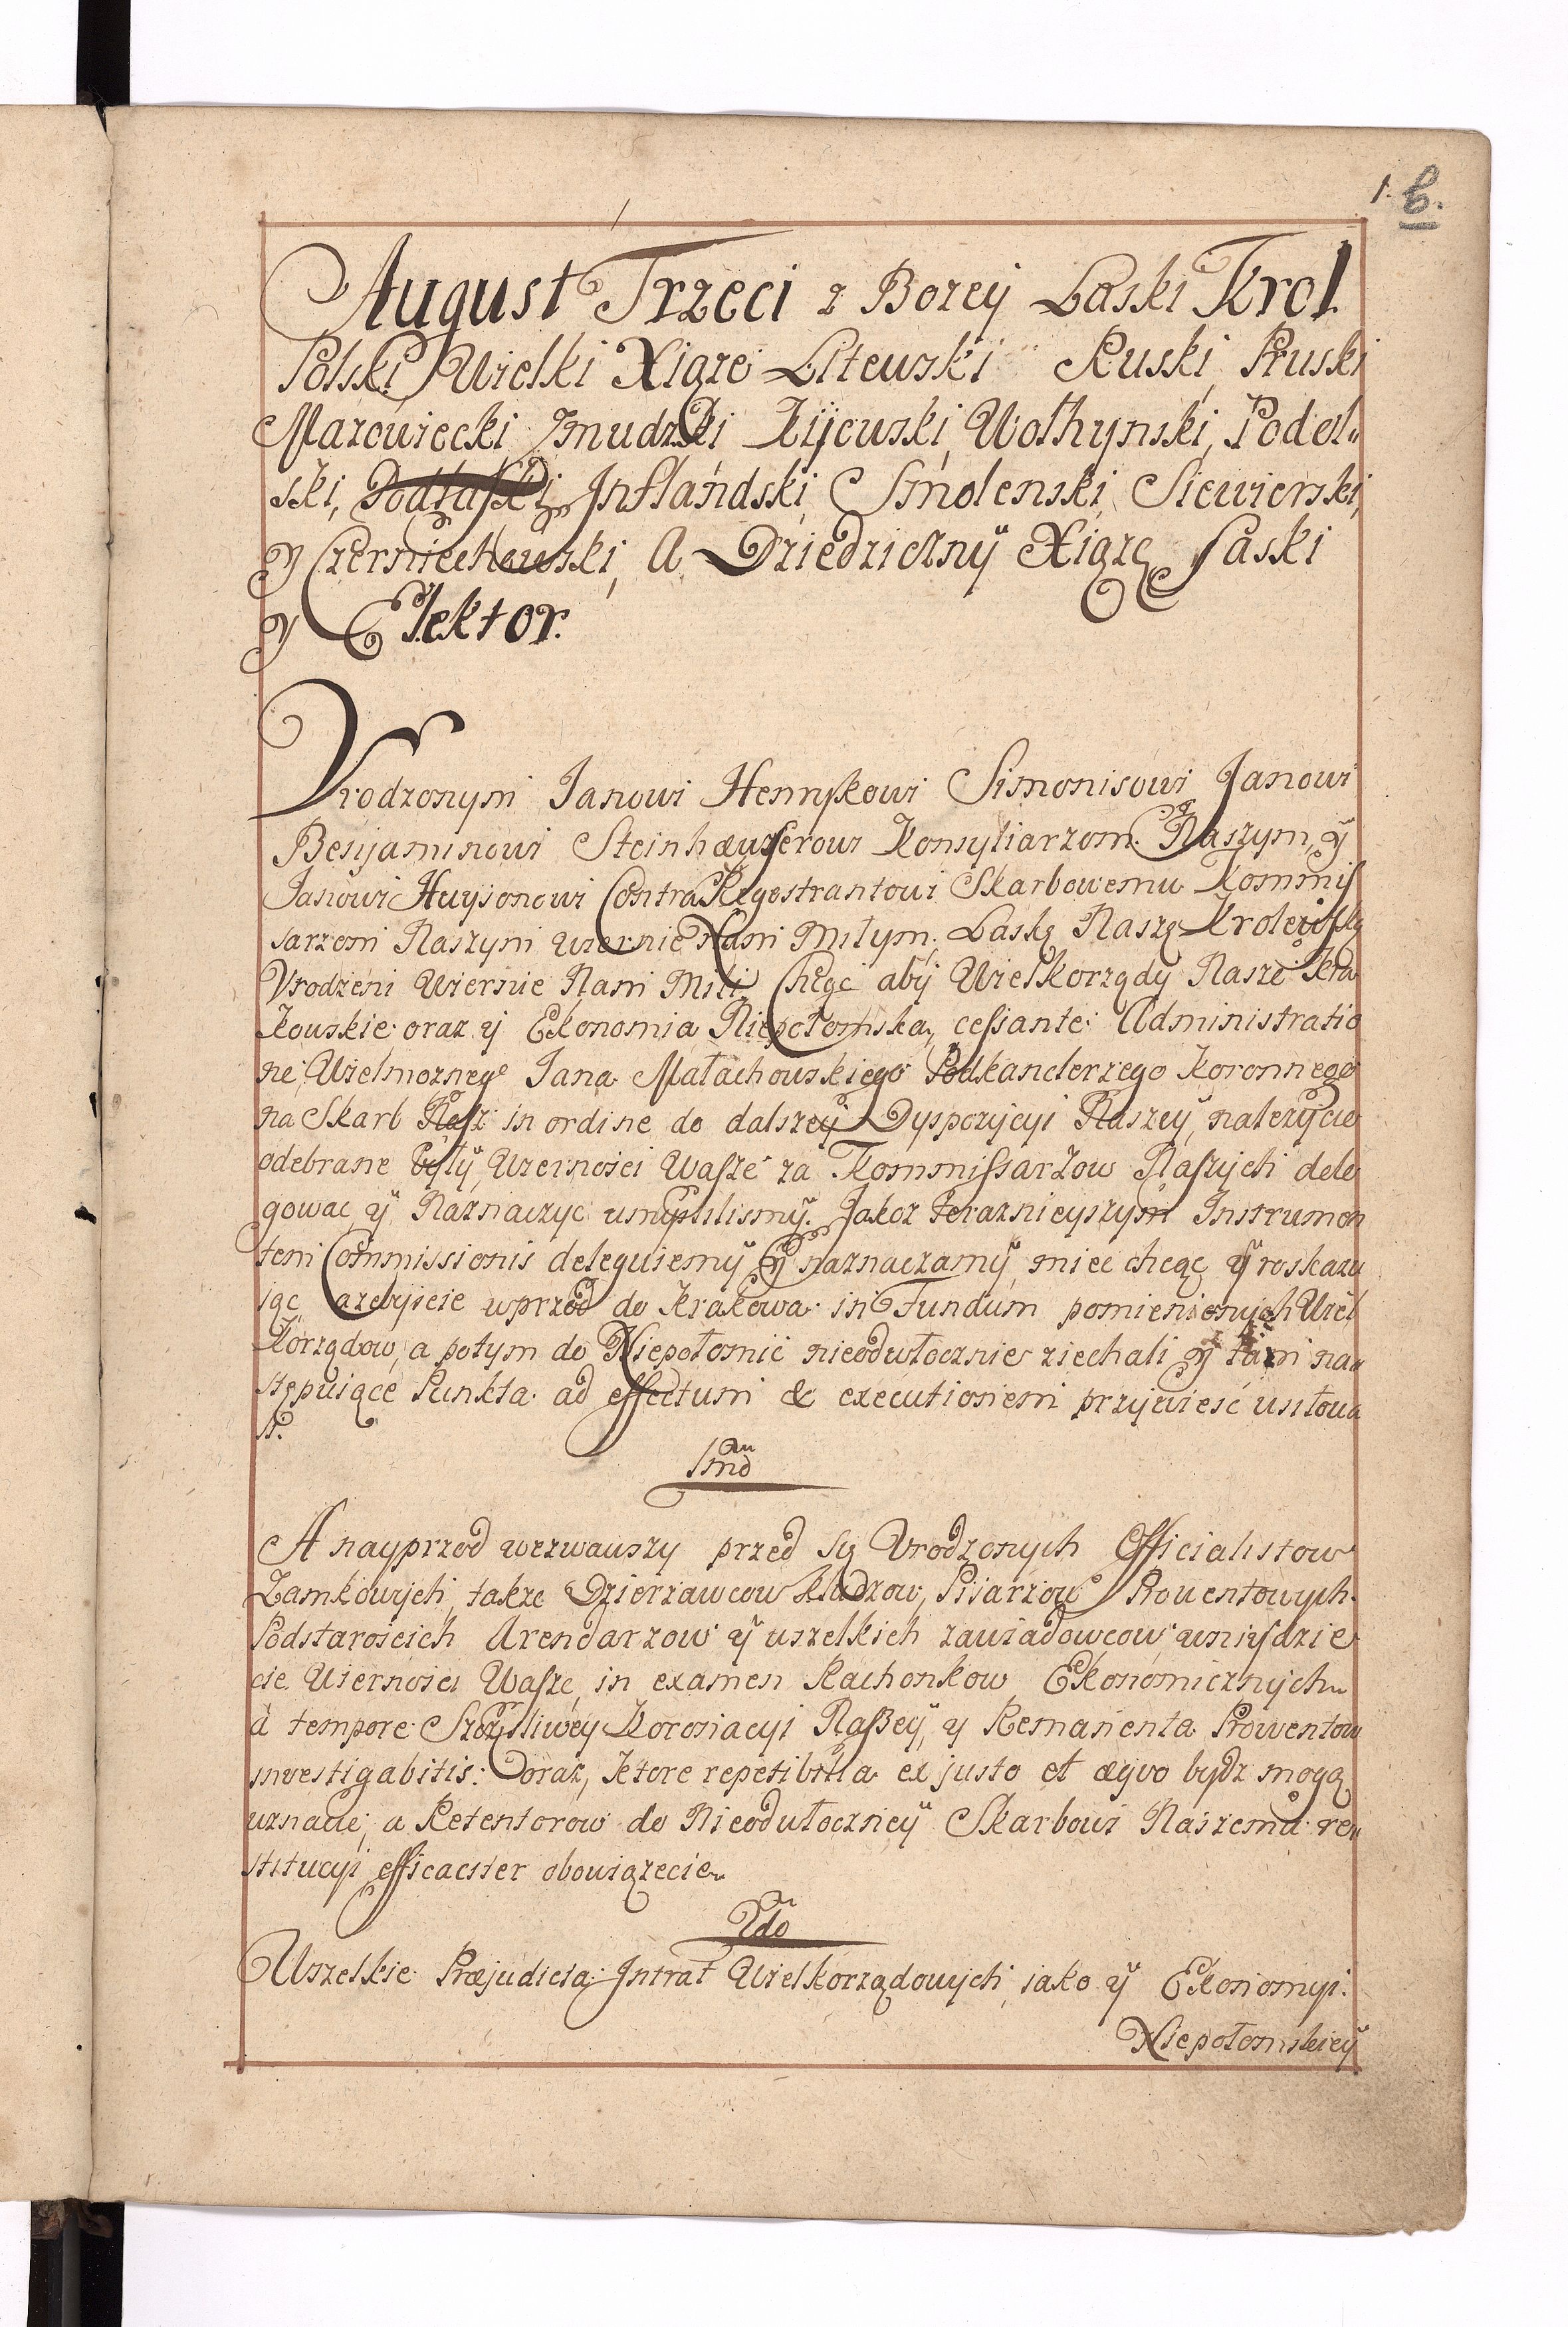 1. 6.
August Trzeci z Bozey Łaski Krol
Polski Wielki Xiąże Litewski Ruski, Pruski
Mazowiecki, Zmudzki Kijowski, Wołhynski, Podol„
ski, Podlaski, Inflandski, Smolenski, Siewierski,
y Czerniechowski, A Dziedziczny Xiąze Saski
y Elektor.
Vrodzonym Janowi Henrykowi Simonisowi Janowi
Benjaminowi Steinhæuserowi Konsyliarzom Naszym, y
Janowi Huysonowi ContraRegestrantowi Skarbowemu Kommis
sarzom Naszym wiernie Nam Miłym. Łaskę Naszą Krolewską
Vrodzeni Wiernie Nam Mili. Chcąc aby Wielkorządy Nasze Kra
kowskie oraz y Ekonomia Niepołomska, cessante Administratio
ne Wielmoznego Jana Małachowskiego Podkanclerzego Koronnego
na Skarb Nasz in ordine do dalszey Dyspozycyi Naszey, nalezycie
odebrane były, Wiernosci Wasze za Kommissarzow Naszych dele
gowac y Naznaczyc umyslilismy. Jakoz teraznieyszym Instrumen
tem Commissionis deleguiemy y naznaczamy, miec chcąc y roskazu
iąc azebyscie wprzod do Krakowa in Fundum pomienionych Wiel
korządow, a potym do Niepołomic nieodwłocznie ziechali y tam na„
stępuiące Punkta ad effectum & executionem przywiesć usiłowa
li.
1mo
A nayprzod wezwawszy przed się Vrodzonych Officialistow
Zamkowych, takze Dzierzawcow Kluczow, Pisarzow Prowentowych
Podstaroscich Arendarzow y wszelkich zawiadowcow wniydzie
cie Wiernosci Wasze, in examen Rachonkow Ekonomicznych
à tempore Szczęsliwey Koronacyi Naszey, y Remanenta Prowentow
investigabitis: oraz, ktore repetibilia ex justo et æquo bydz mogą
uznacie, a Retentorow do Nieodwłoczney Skarbowi Naszemu re„
stitucyi efficaciter obowiązecie.
2do
Wszelkie Præjudicia Intrat Wielkorządowych, iako y Ekonomyi
Niepołomskiey